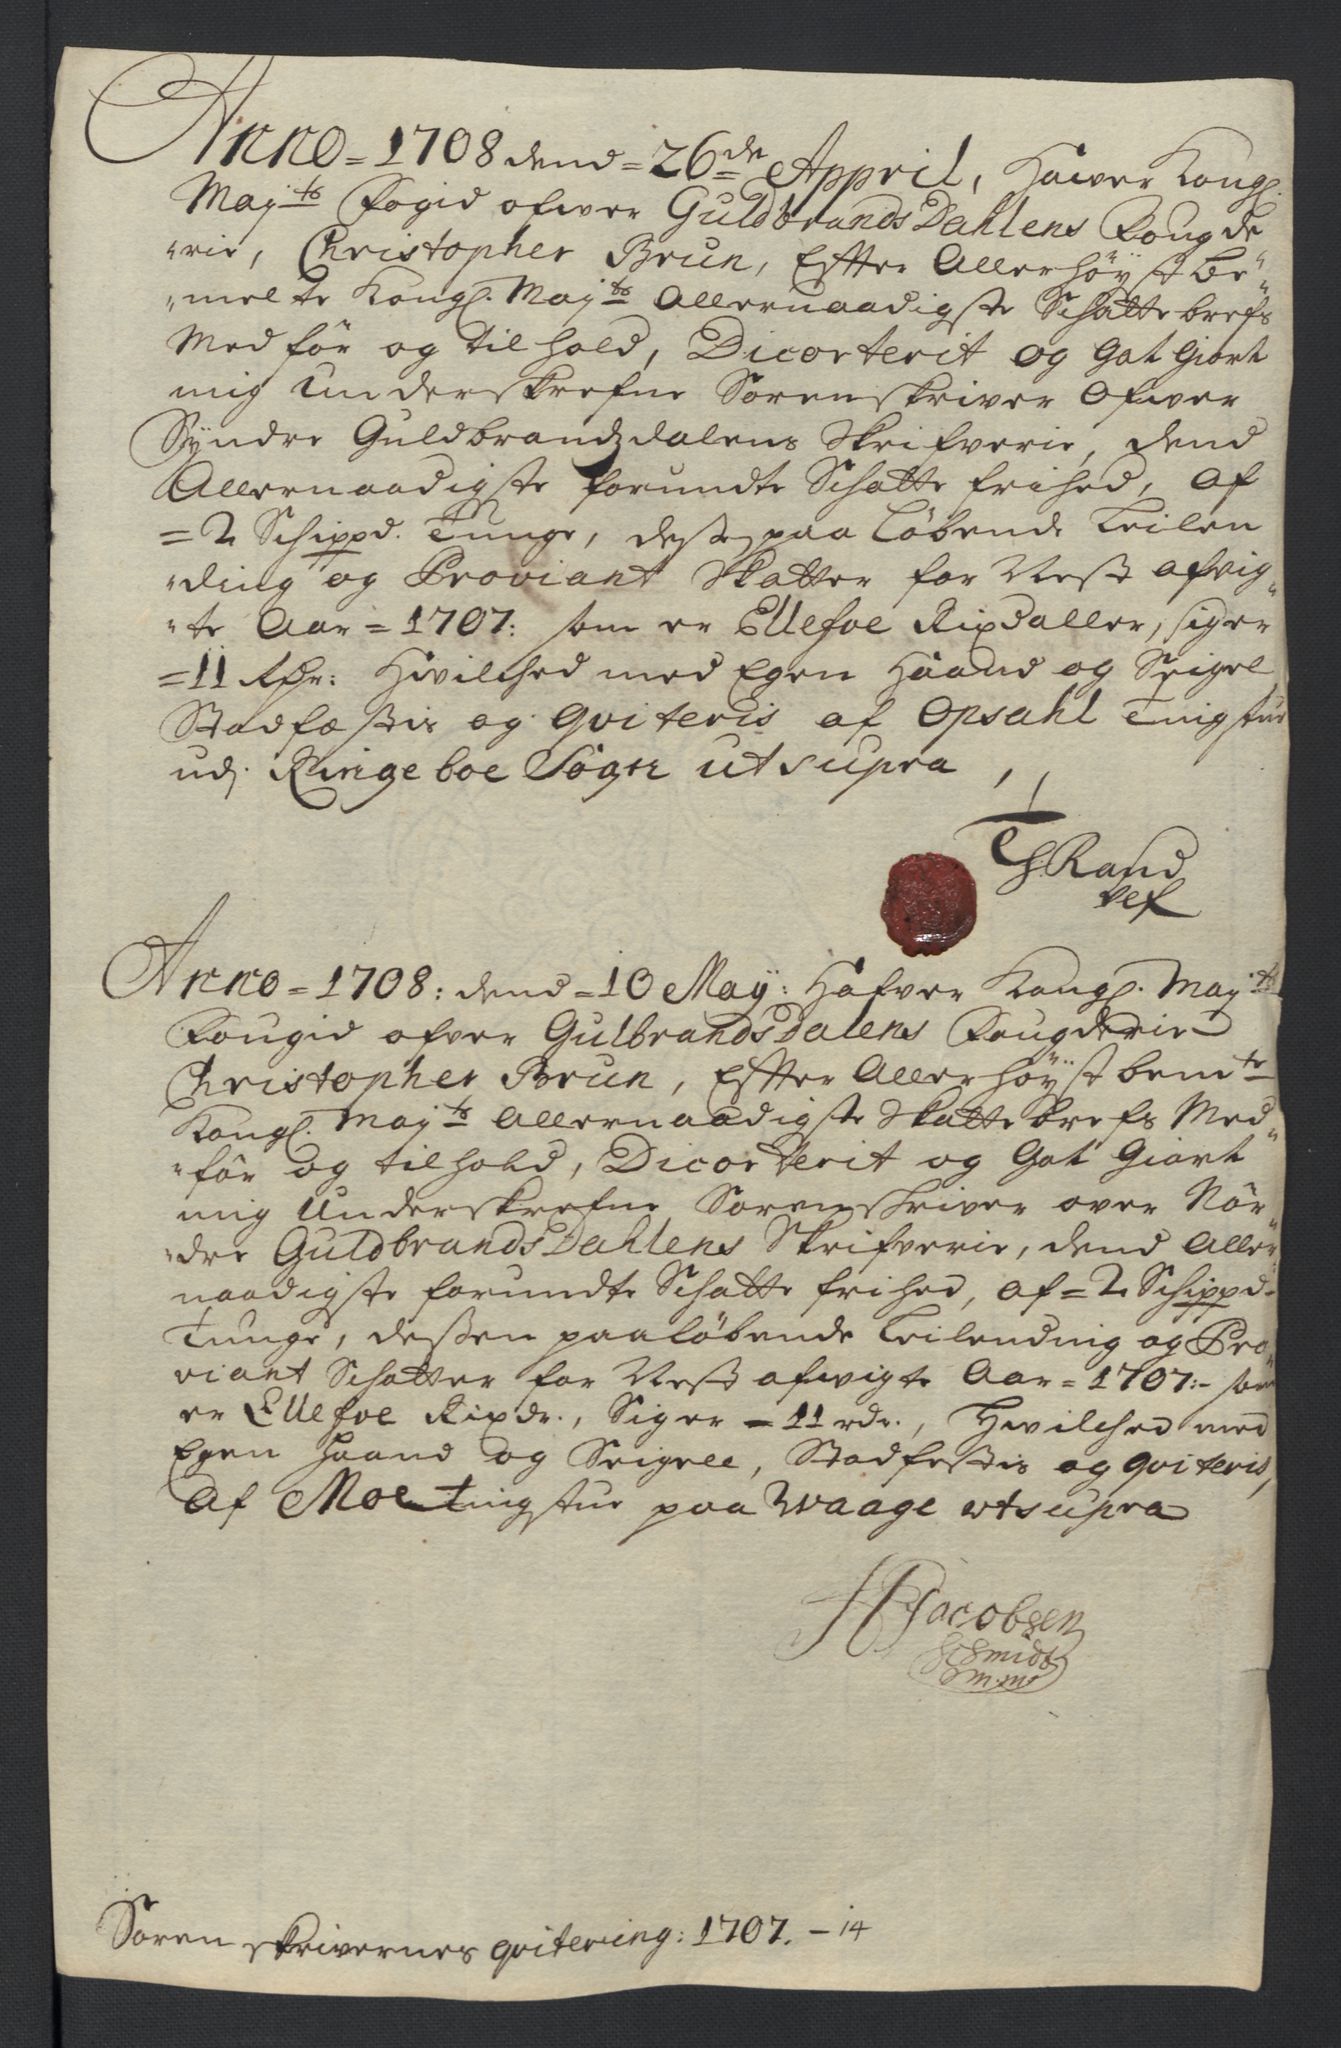 Anno = 1708 dend = 26de Appril, Hawer Kongl.
Majts Fogid ofwer GuldbrandsDahlens Fougde
"rie, Christopher Brun, Effter Allerhöyst be"
"melte Kongl. Majts Allernaadigste Schattebrefs
Medför og tilhold, Dicorterit og Got Giort
mig Underskrefne Sorenskriver Ofwer
Syndre Guldbrandzdalens Skrifverie, dend
Allernaadigste forundte Schatte frihed, Af
= 2 Schippd. Tunge, desse paa Löbende Leilen
"ding og Proviant Skatter for Nest afvig"
"te Aar = 1707: som er Ellefve Rixdaller, siger
= 11 Rdr: Hwilched med Egen Haand og Seigel
Stadfæstis og Qviteris af Opsahl Tingstue
udj Ringeboe Sogn ut supra
Th Rand
Anno = 1708: dend = 10 May: Hafver Kongl. Mayts
Fougid ofver GulbrandsDalens Fougderie
Christopher Brun, Effter Allerhöyst bemte
Kongl. Mayts Allernaadigste Skattebrefs Med"
"för og tilhold, Dicorterit og Got Giort
mig Underskrefne Sorenskriver over Nör"
"dre GuldbrandsDahlens Skrifverie, dend Aller"
naadigste forundte Schatte frihed, af = 2 Schippd
Tunge, dessen paaløbende Leilending og Pro"
viant Schatter for Nest afwigte Aar = 1707:- som
er Ellefve Rixdr., Siger = 11 rdr., Hwilched med
Egen Haand og Seigell, Stadfestis og Qviteris,
Af Moe Tingstue paa Waage ut supra
HPJacobsen
Schmidt
m.m
Sorenskrivernes qvitering: 1707. – 14